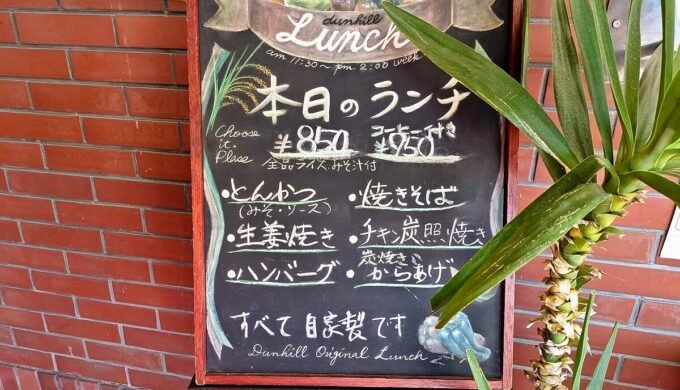 dunhill
Lunch
am 11:30~pm. 2:00 week
本日のランチ
Choose
it.
Plase
¥850
コーヒー付き
¥950
全品ライス、みそ汁付
・とんかつ
(みそ・ソース)
・焼きそば
・生姜焼き
・チキン炭照焼き
・ハンバーグ
・炭焼き
からあげ
すべて自家製です
Dunhill Original Lunch